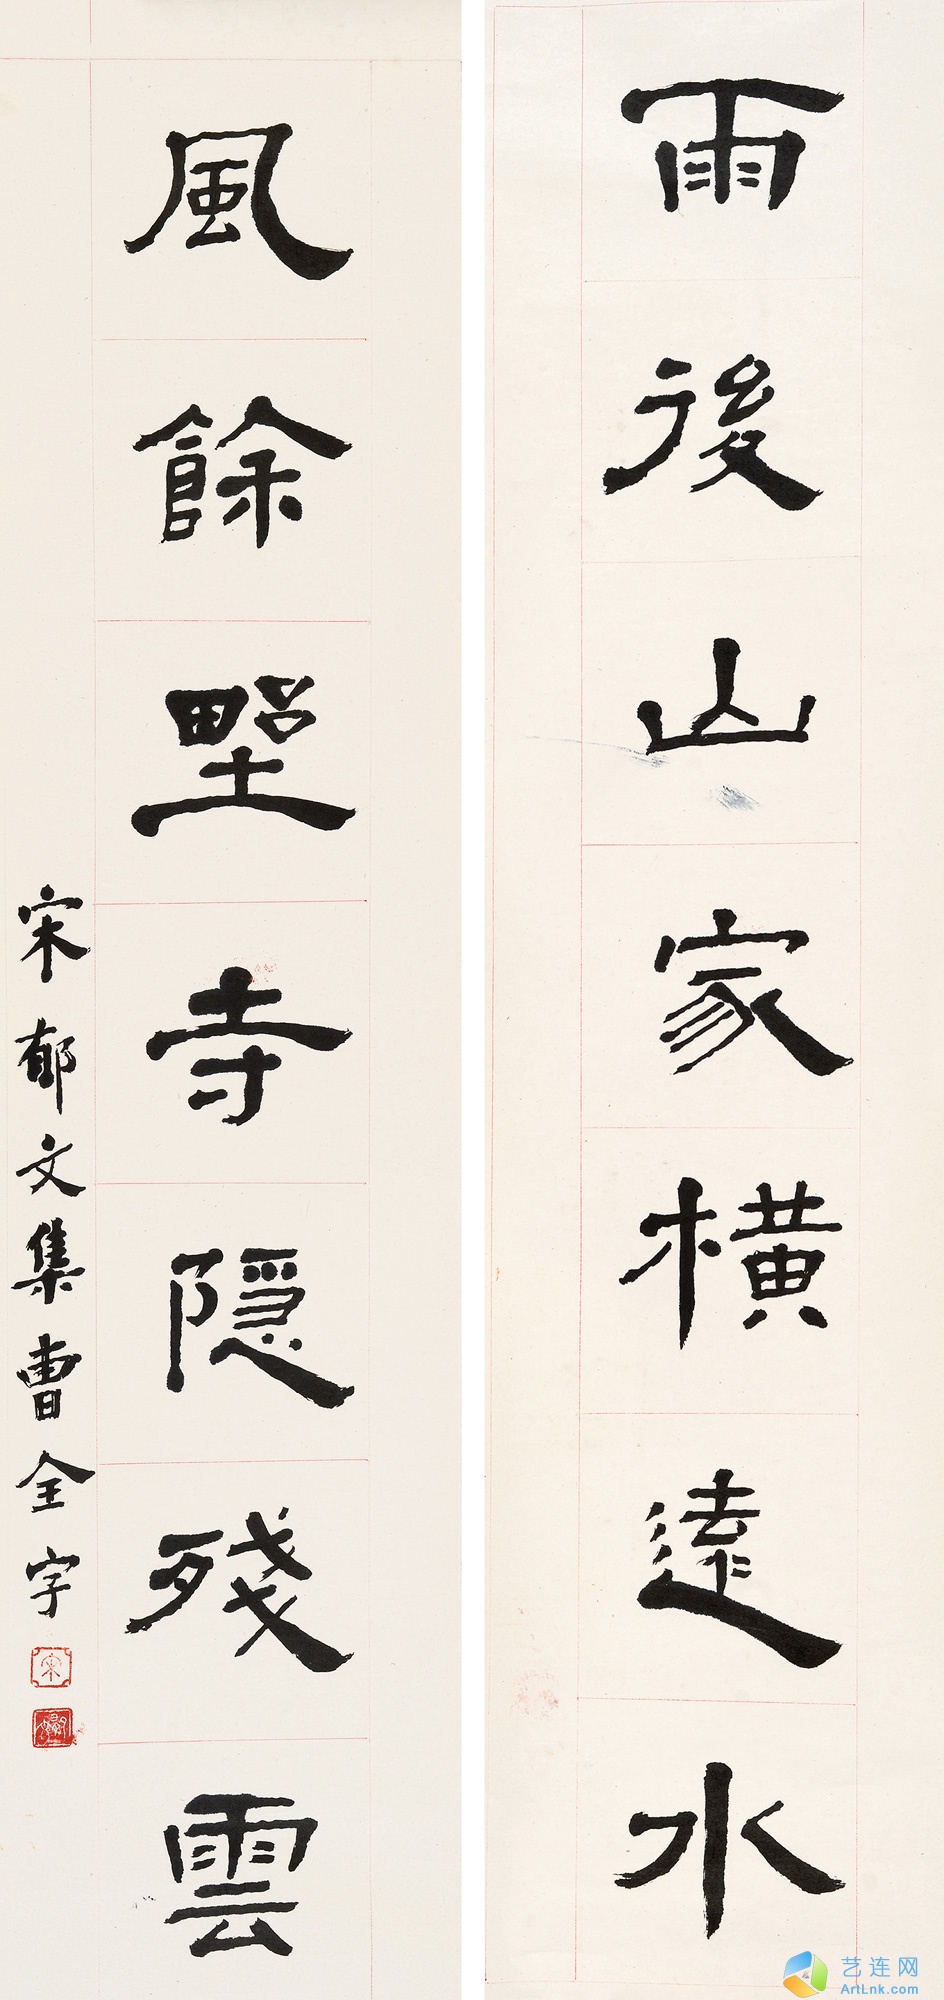 雨後山家橫遠水
風餘野寺隱殘雲
宋郁文集曹全字
宋
艺连网
ArtLnk.com